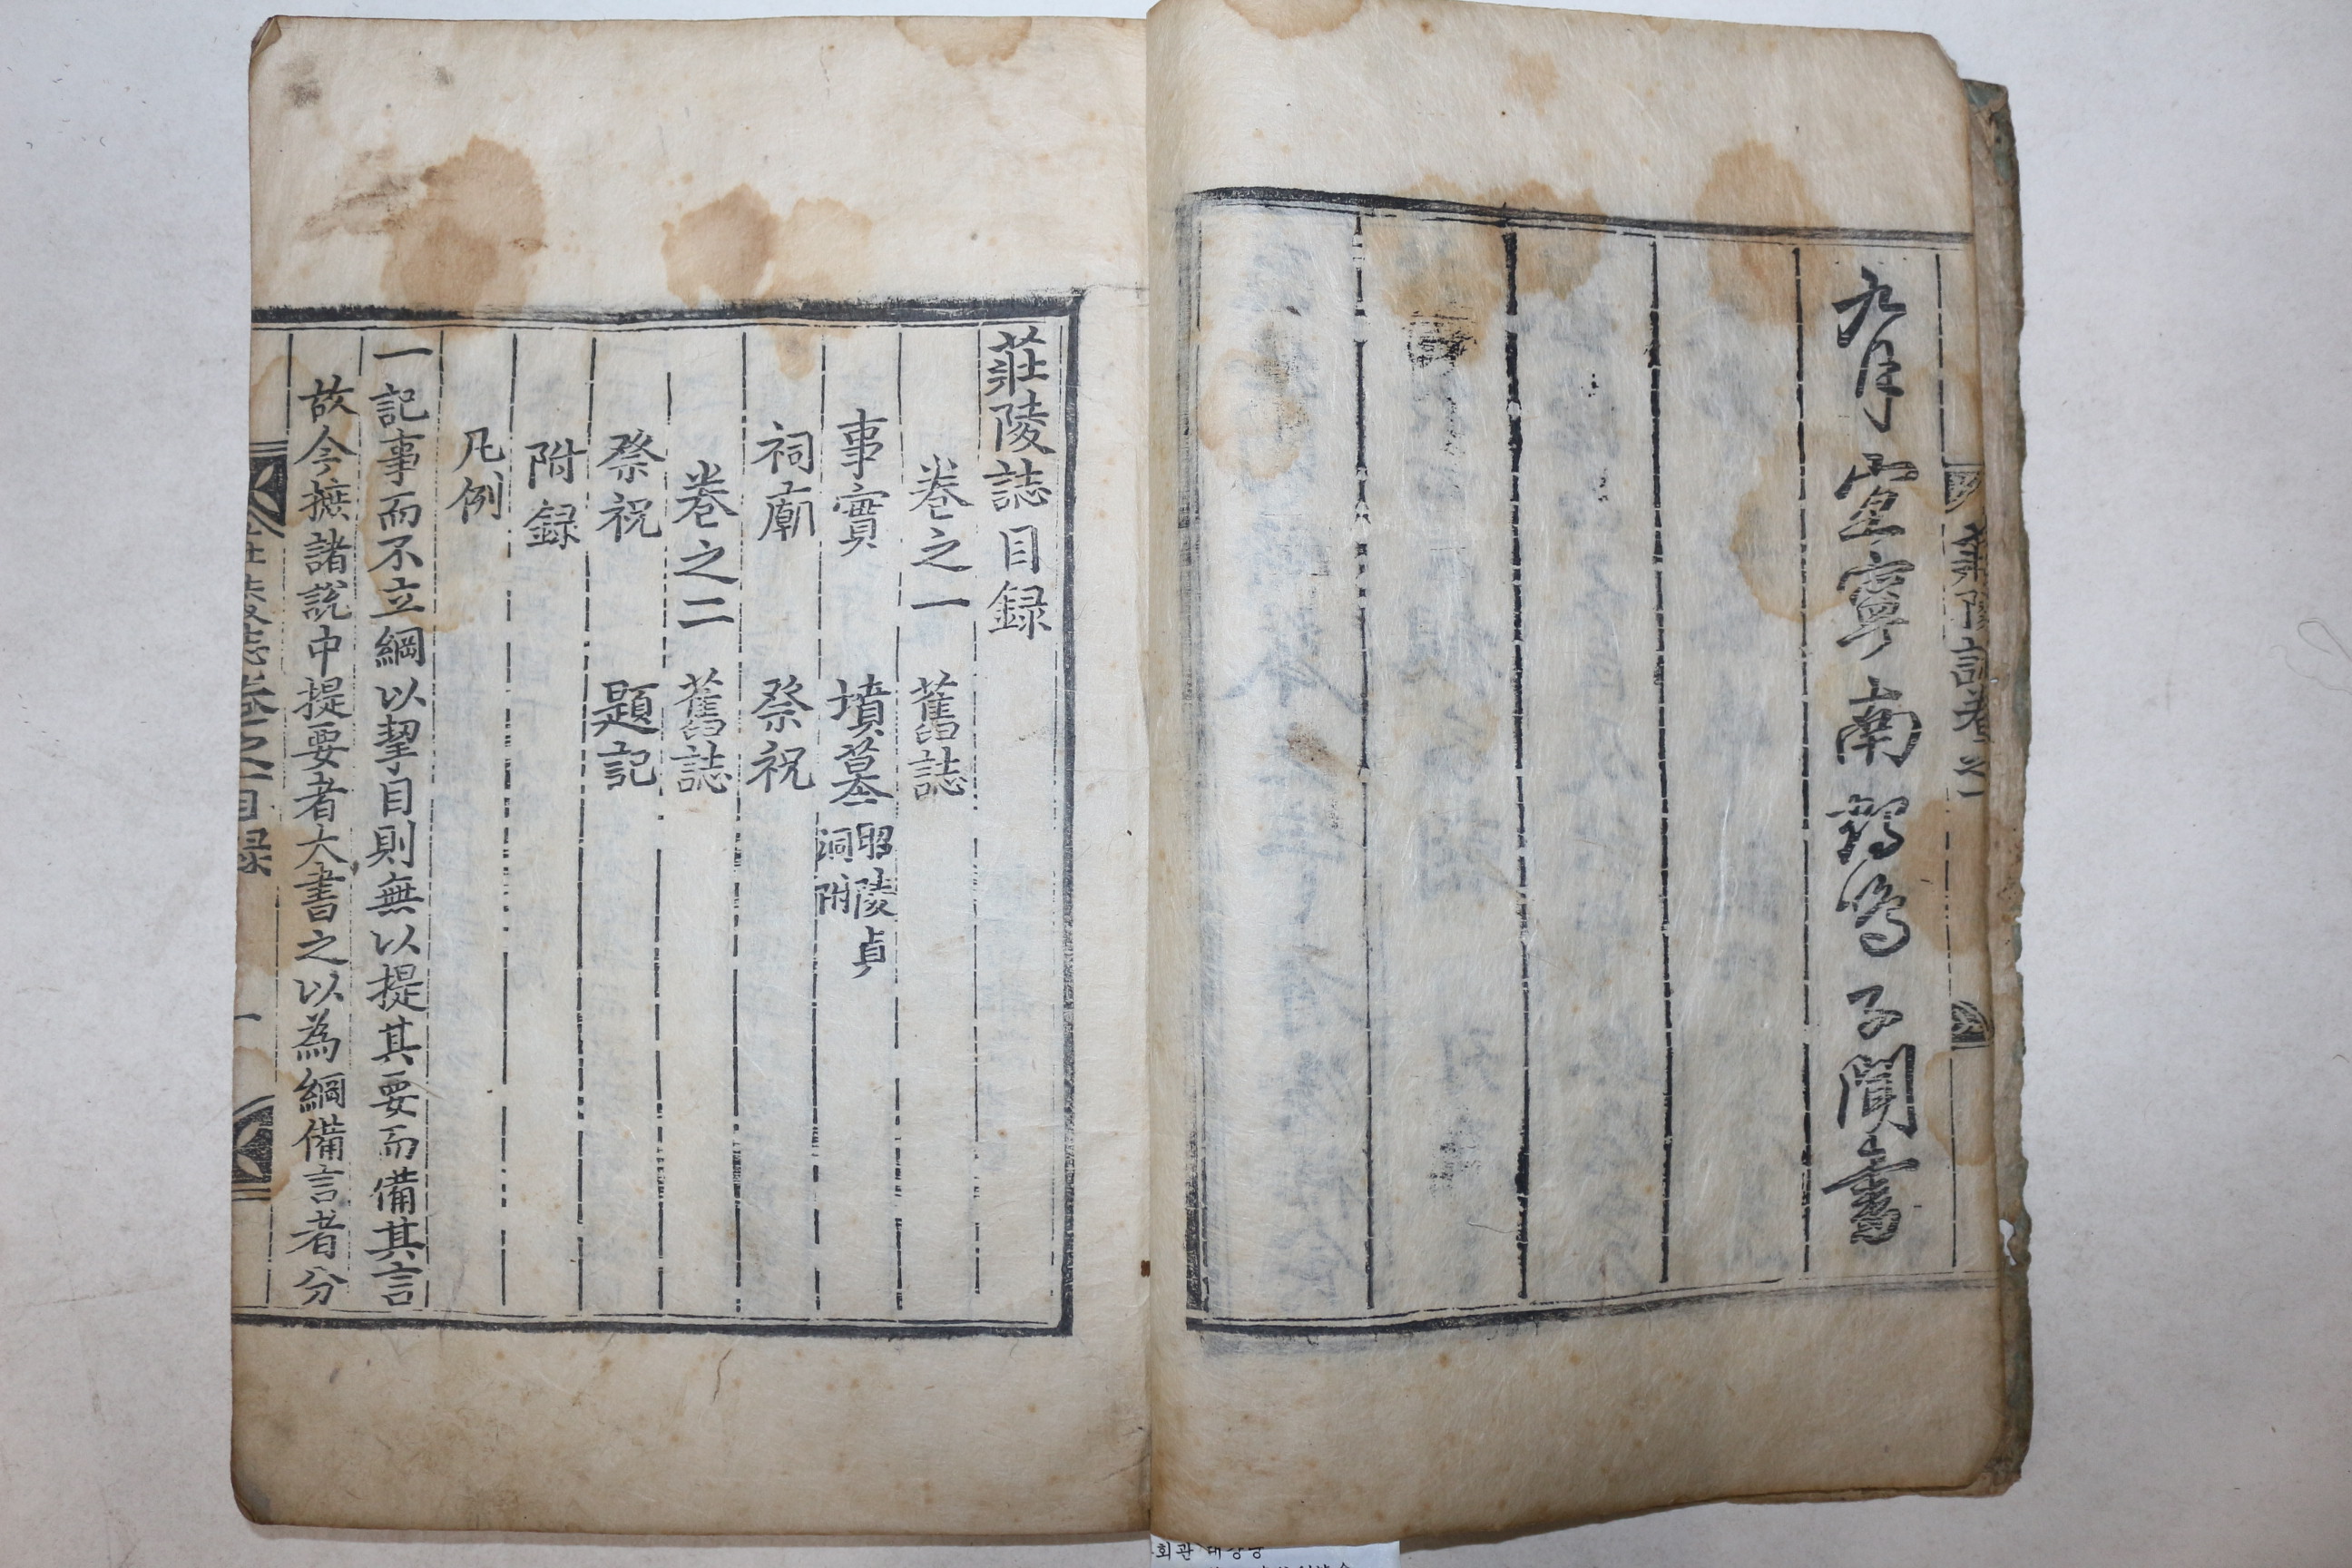 九月宜寧南鶴鳴子聞書
莊陵誌目録
卷之一 舊誌
事實 墳墓 昭陵貞
洞附
祠廟 祭祝
卷之二 舊誌
祭祝 題記
附録
凡例
一記事而不立綱以挈目則無以提其要而備其言
故今摭諸說中提要者大書之以為綱備言者分
莊陵誌卷之一目録 一